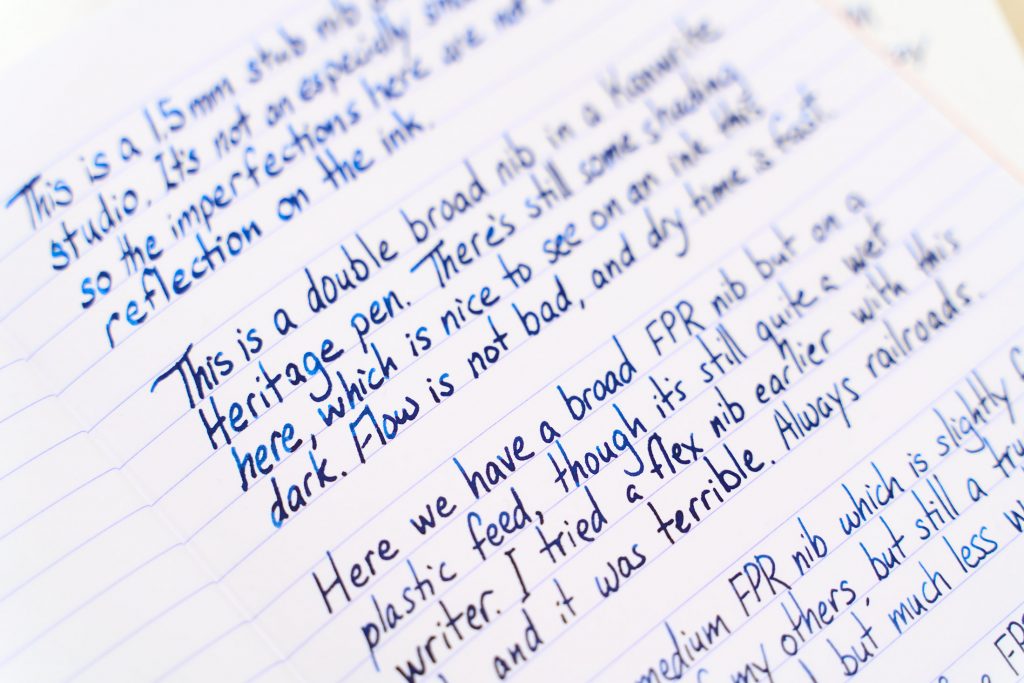 This is a 1.5mm stub nib
studio. It's not an especially
so the imperfections here are not
reflection on the ink.
This is a double broad nib in a Kanwrite
Heritage pen. There's still some shading
here, which is nice to see on an ink that
dark. Flow is not bad, and dry time is fast.
Here we have a broad FPR nib but on a
plastic feed, though it's still quite a wet
writer. I tried a flex nib earlier with this
and it was terrible. Always railroads.
medium FPR nib which is slightly
my others, but still a
but much less
FPR